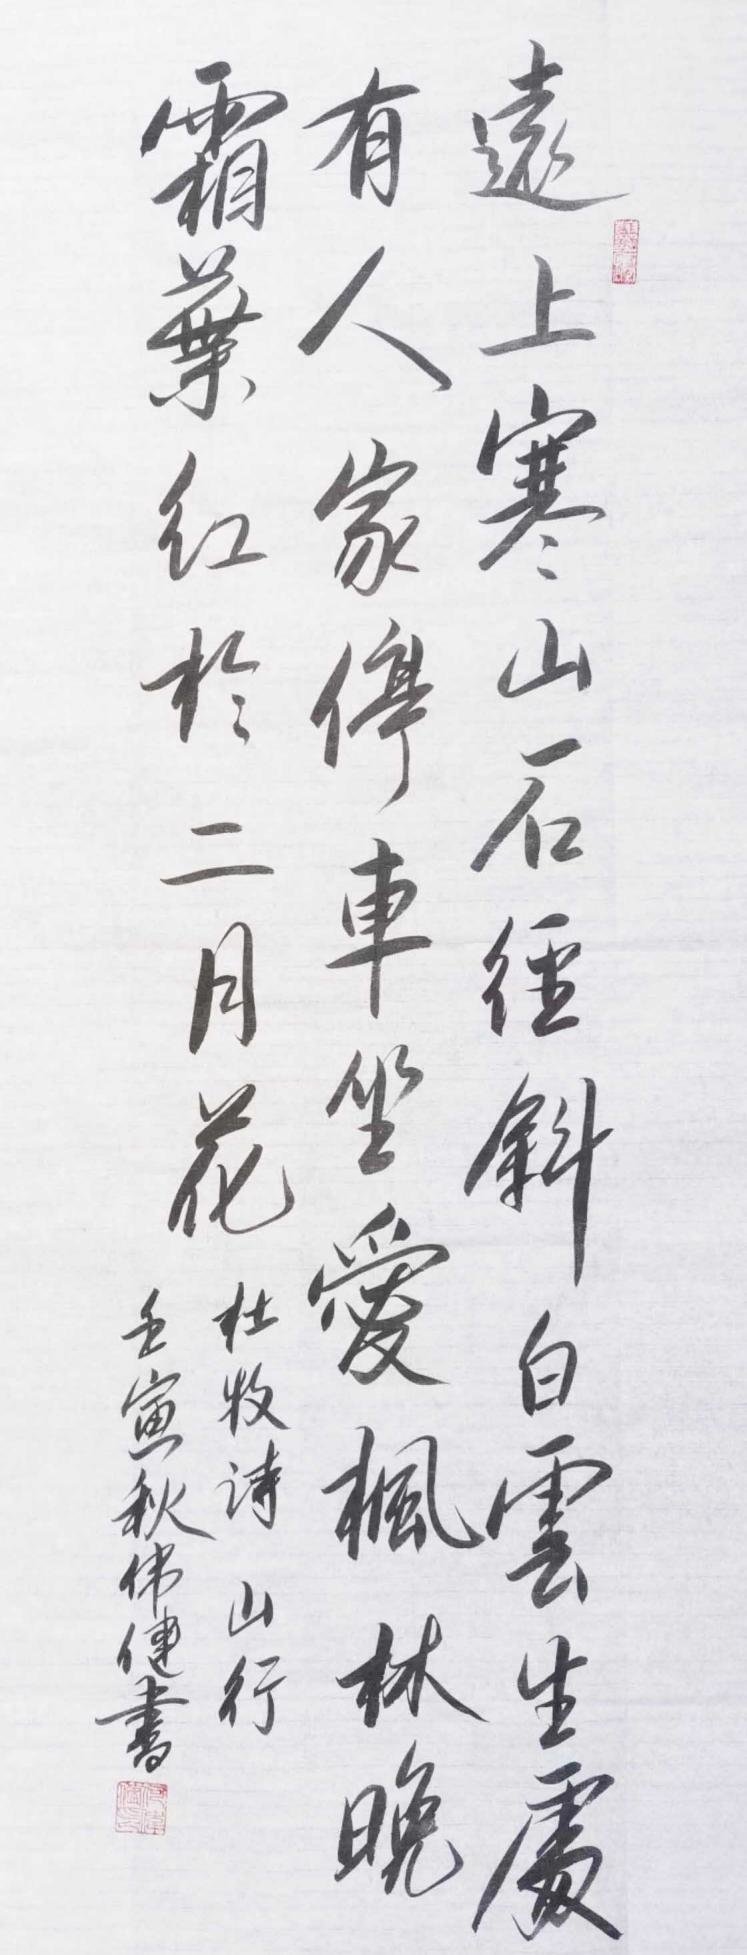 遠上寒山石徑斜白雲生處
有人家停車坐愛楓林晚
霜葉红於二月花
杜牧诗 山行
壬寅秋伟健書